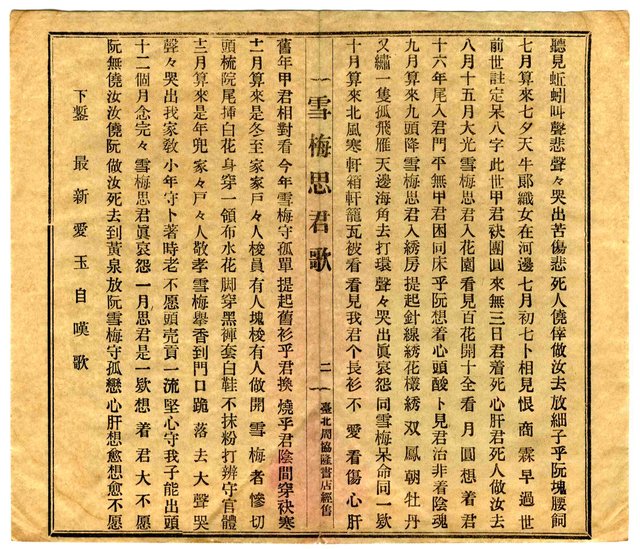 聽見蚯蚓叫聲悲 聲々哭出苦傷悲 死人僥倖做汝去 放細子乎阮塊腰飼
七月算來七夕天 牛郞織女在河邊 七月初七卜相見 恨商霖早過世
前世註定呆八字 此世甲君袂團圓 來無三日君着死 心肝君死人做汝去
八月十五月大光 雪梅思君入花園 看見百花開十全 看月圓想着君
十六年尾入君門 平無甲君困同床 乎阮想着心頭酸 卜見君治非着陰魂
九月算來九頭降 雪梅思君入綉房 提起針線綉花樣 綉双鳳朝牡丹
又繡一隻孤飛雁 天邊海角去打環 聲々哭出眞哀怨 同雪梅呆命同一欵
十月算來北風寒 軒箱軒籠瓦被看 看見我君个長衫 不愛看傷心肝
雪梅思君歌 二 臺北周協隆書店經售
舊年甲君相對看 今年雪梅守孤單 提起舊衫乎君換 燒乎君陰間穿袂寒
十一月算來是冬至 家家戶々人梭員 有人塊梭有人做開 雪梅者慘切
頭梳院尾揷白花 身穿一領布水花 脚穿黑褲套白鞋 不抹粉打辨守官體
十二月算來是年兜 家々戶々人敬孝 雪梅擧香到門口 跪落去大聲哭
聲々哭出我家敎 小年守卜著時老 不愿頭壳貢一流 堅心守我子能出頭
十二個月念完々 雪梅思君眞哀怨 一月思君是一欵 想着君大不愿
阮無僥汝汝僥阮 做汝死去到黃泉 放阮雪梅守孤戀 心肝想愈想愈不愿
下鏨 最新愛玉自嘆歌